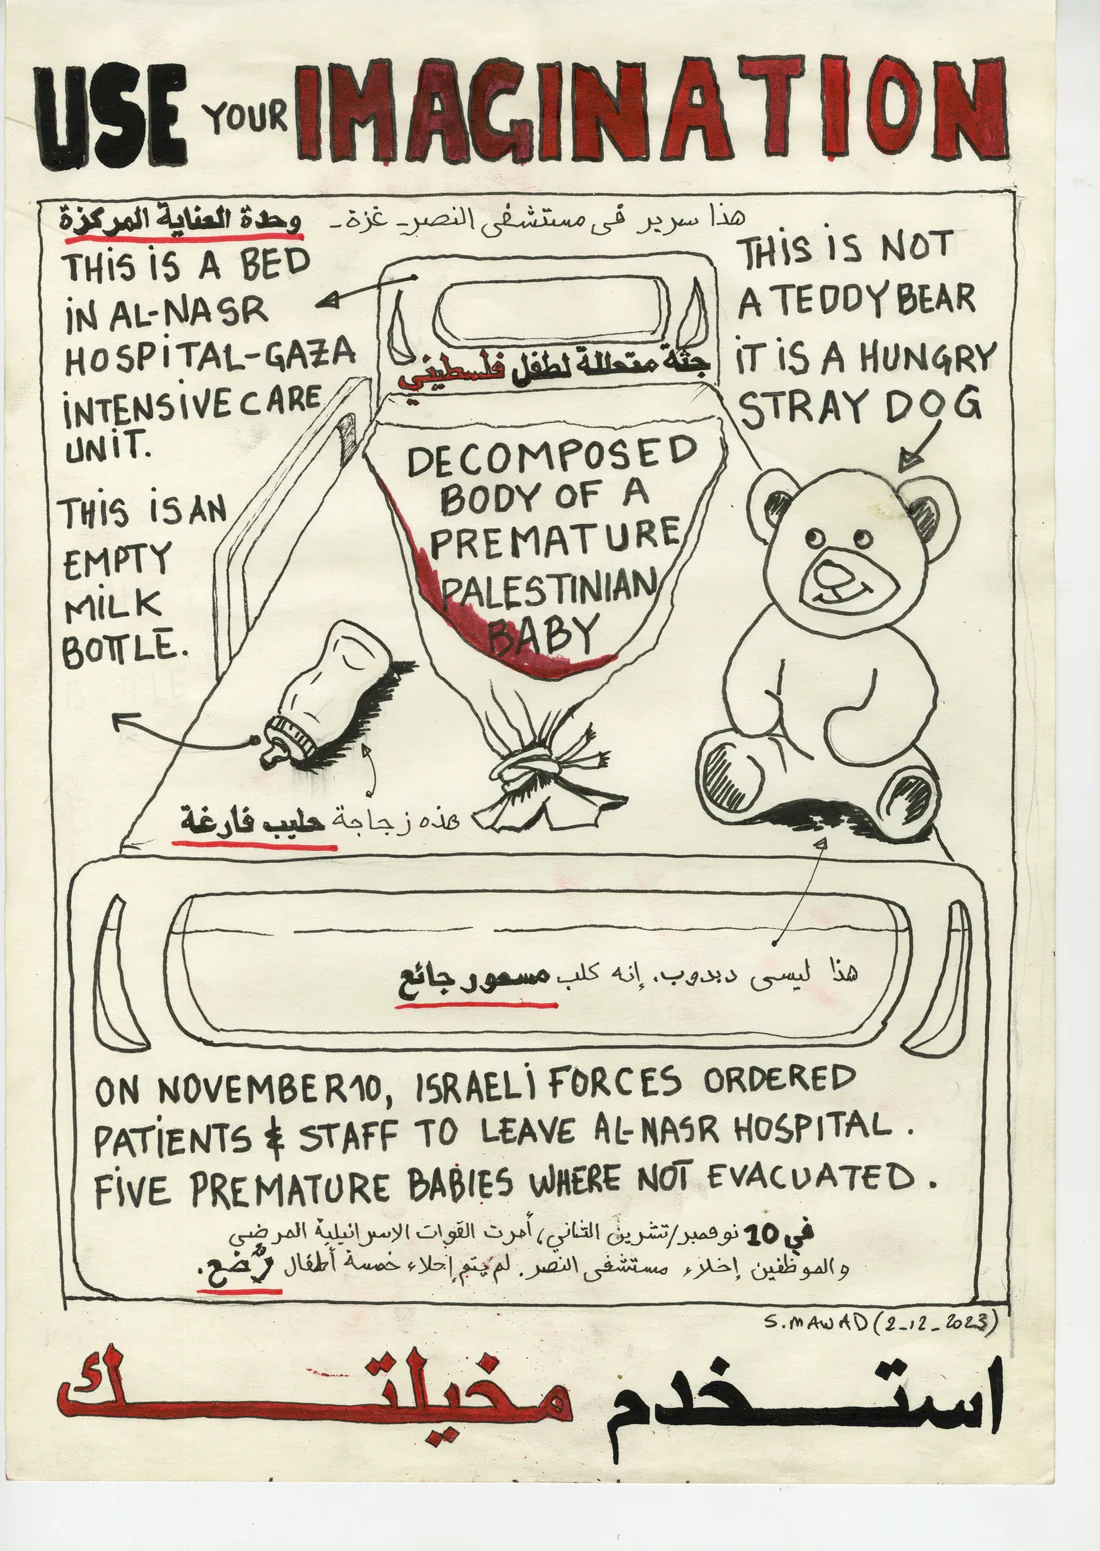 USE YOUR IMAGINATION
هذا سرير في مستشفى النصر - غزة - وحدة العناية المركزة
THIS IS A BED
IN AL-NASR
HOSPITAL-GAZA
INTENSIVE CARE
UNIT.
THIS IS AN
EMPTY
MILK
BOTTLE.
THIS IS NOT
A TEDDY BEAR
IT IS A HUNGRY
STRAY DOG
جثة متحللة لطفل فلسطيني
DECOMPOSED
BODY OF A
PREMATURE
PALESTINIAN
BABY
هذه زجاجة حليب فارغة
هذا ليسى دبدوب. إنه كلب مسعور جائع
ON NOVEMBER 10, ISRAELI FORCES ORDERED
PATIENTS & STAFF TO LEAVE AL-NASR HOSPITAL.
FIVE PREMATURE BABIES WHERE NOT EVACUATED.
في 10 نوفمبر/تشرين الثاني، أمرت القوات الاسرائيلية المرضى
والموظفين إخلاء مستشفى النصر. لم يتم إخلاء خمسة أطفال رُضع.
S. MAWAD (2-12-2023)
استخدم مخيلتك